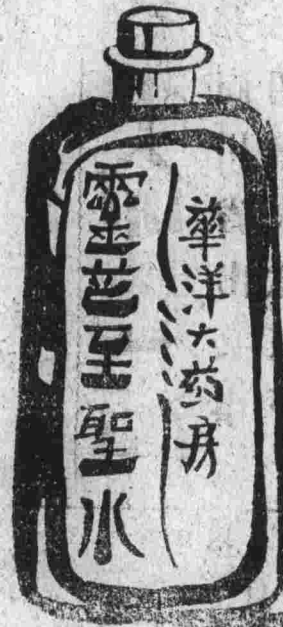 華洋大葯房
靈芝至聖水